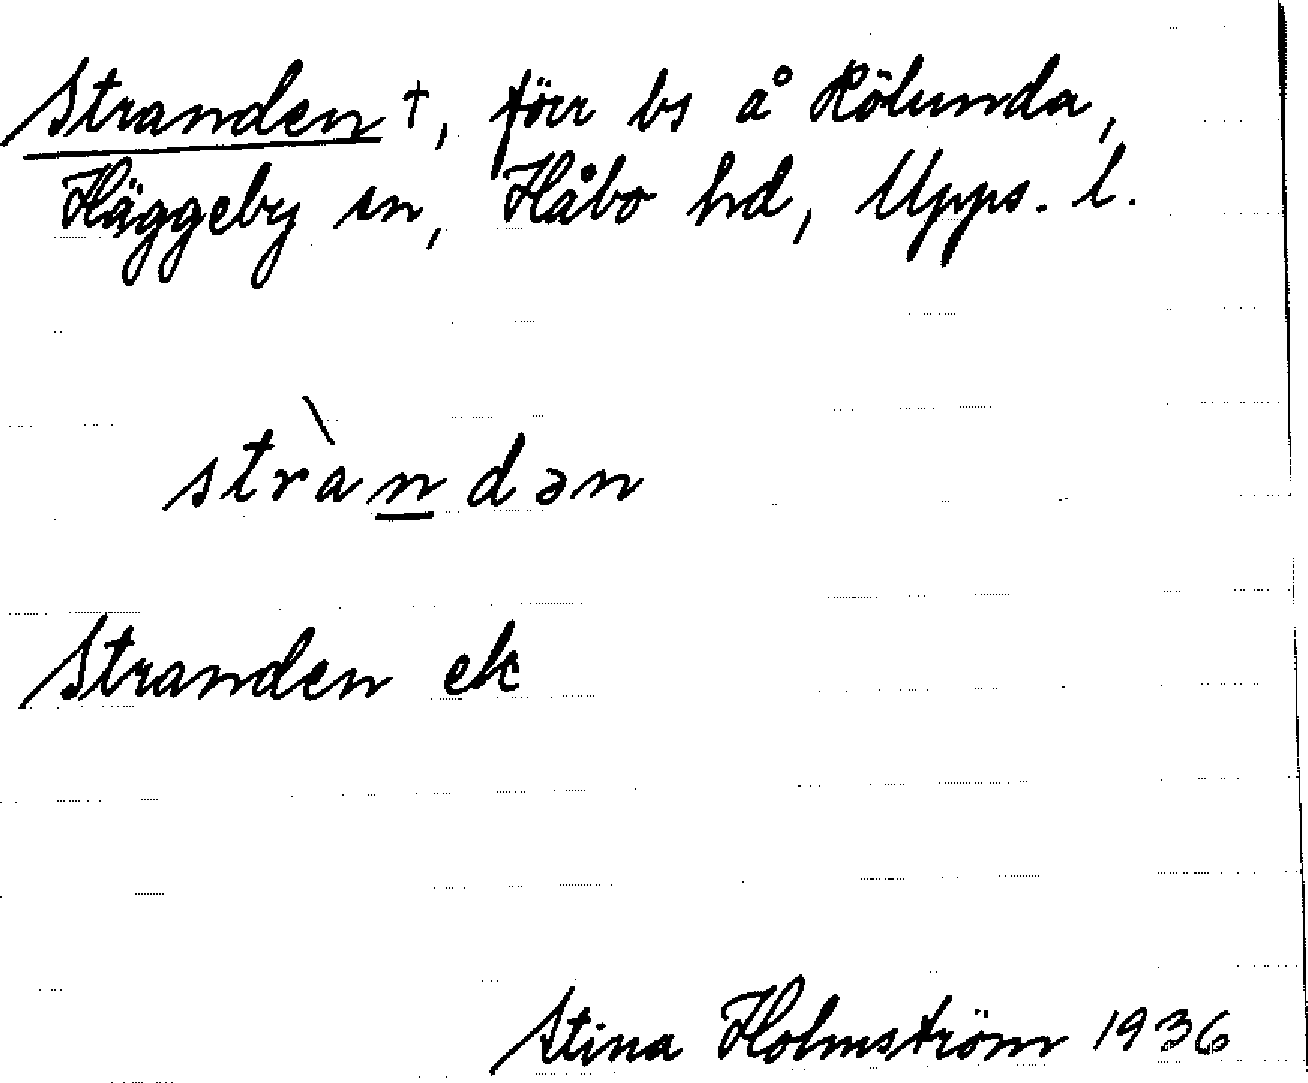 Stranden †, förr bs å Rölunda,
Häggeby sn, Håbo hd, Upps. l.
stràndən
Stranden ek
Stina Holmström 1936